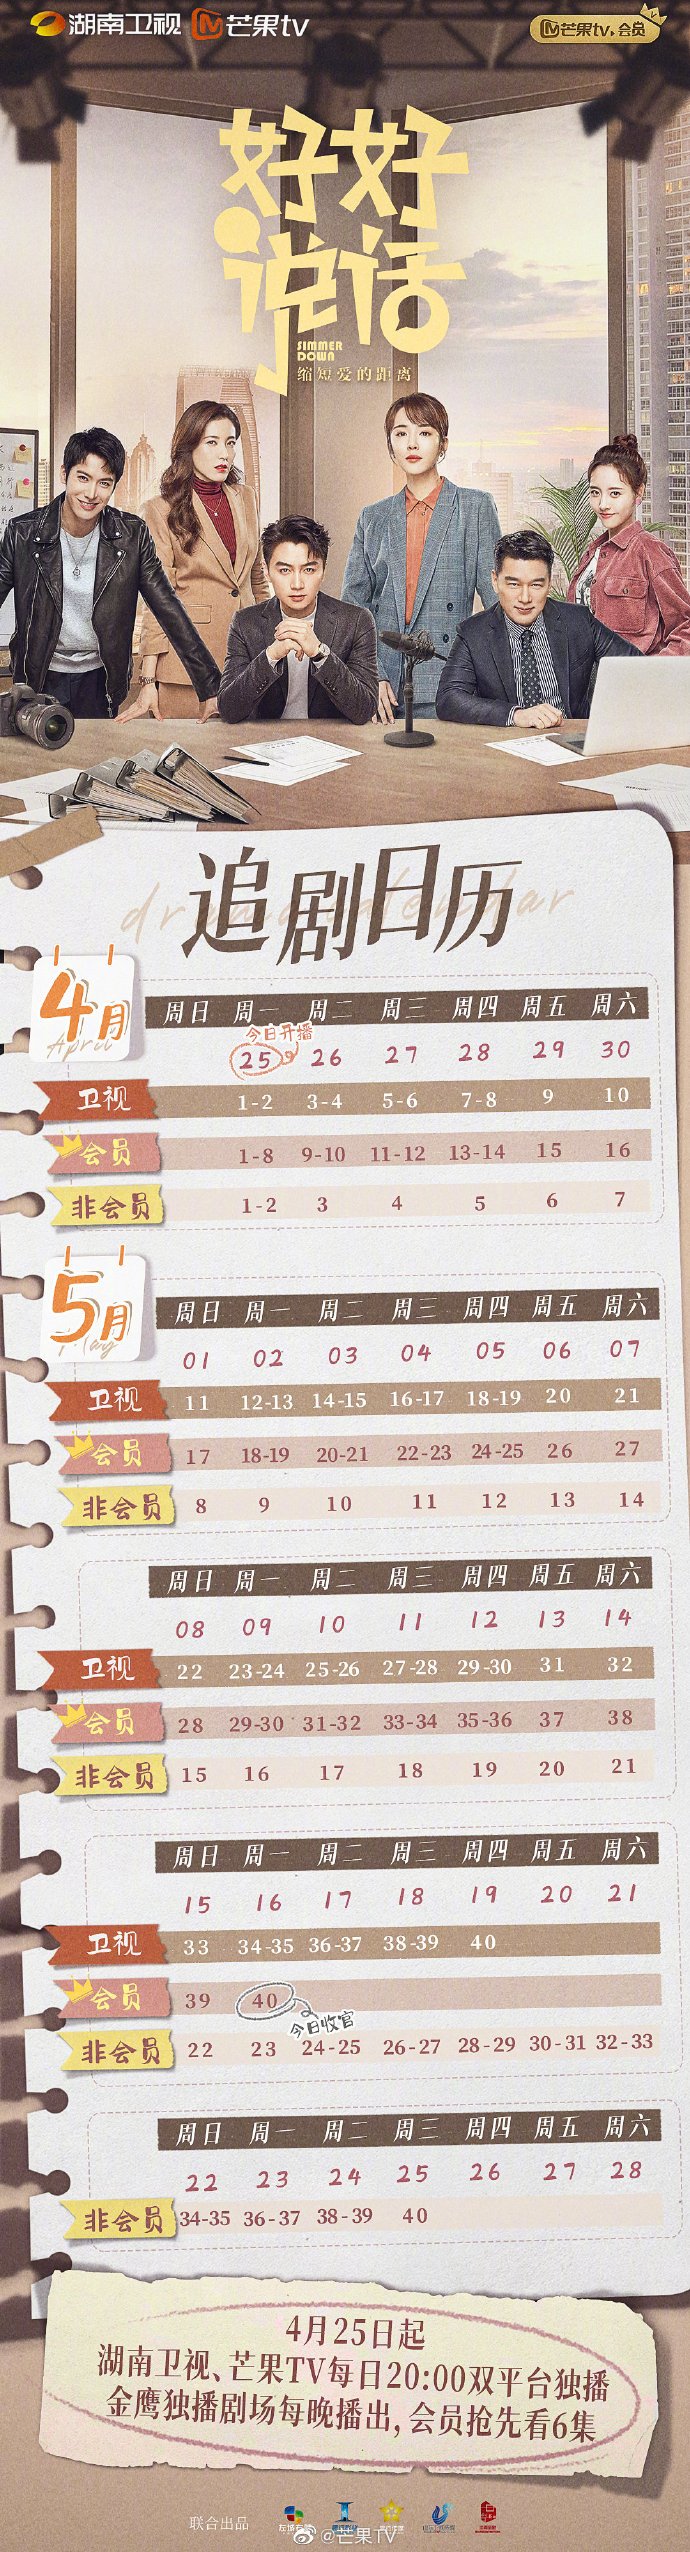 湖南卫视 芒果tv
芒果tv会员
好好
说话
SIMMER
DOWN
缩短爱的距离
drama calendar
追剧日历
4月
April
周日 周一 周二 周三 周四 周五 周六
今日开播
25 26 27 28 29 30
卫视 1-2 3-4 5-6 7-8 9 10
会员 1-8 9-10 11-12 13-14 15 16
非会员 1-2 3 4 5 6 7
5月
May
周日 周一 周二 周三 周四 周五 周六
01 02 03 04 05 06 07
卫视 11 12-13 14-15 16-17 18-19 20 21
会员 17 18-19 20-21 22-23 24-25 26 27
非会员 8 9 10 11 12 13 14
周日 周一 周二 周三 周四 周五 周六
08 09 10 11 12 13 14
卫视 22 23-24 25-26 27-28 29-30 31 32
会员 28 29-30 31-32 33-34 35-36 37 38
非会员 15 16 17 18 19 20 21
周日 周一 周二 周三 周四 周五 周六
15 16 17 18 19 20 21
卫视 33 34-35 36-37 38-39 40
会员 39 40
今日收官
非会员 22 23 24-25 26-27 28-29 30-31 32-33
周日 周一 周二 周三 周四 周五 周六
22 23 24 25 26 27 28
非会员 34-35 36-37 38-39 40
4月25日起
湖南卫视、芒果TV每日20:00双平台独播
金鹰独播剧场每晚播出,会员抢先看6集
联合出品
@芒果TV